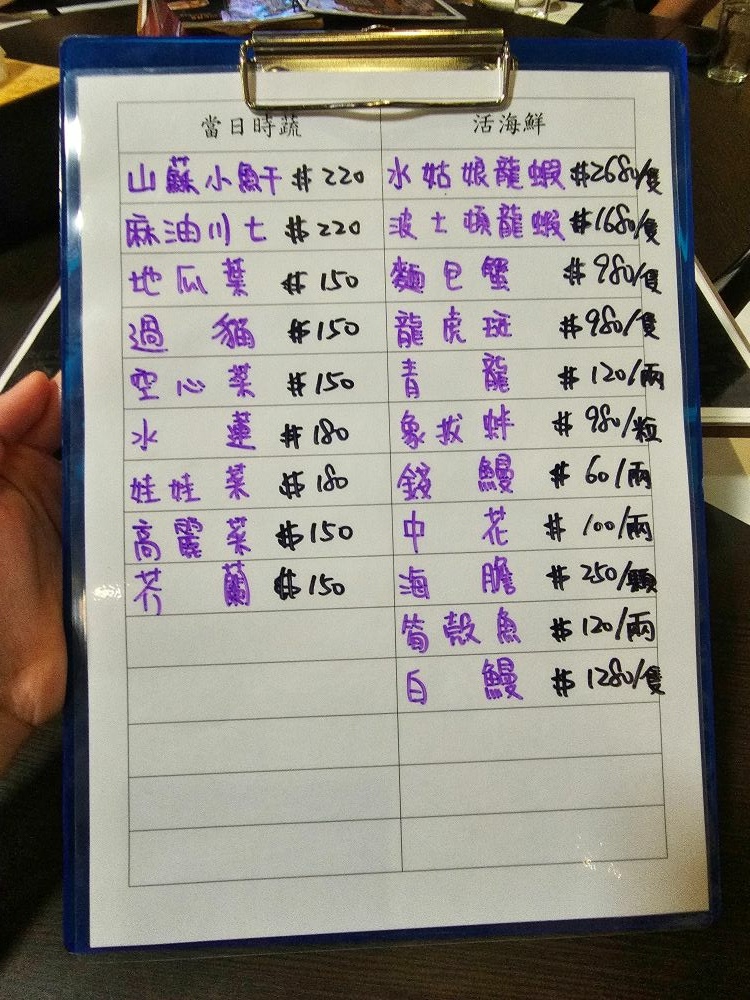 當日時蔬 活海鮮
山蘇小魚干 $220 水姑娘龍蝦 $2680/隻
麻油川七 $220 波士頓龍蝦 $1680/隻
地瓜葉 $150 麵包蟹 $980/隻
過貓 $150 龍虎斑 $980/隻
空心菜 $150 青龍 $120/兩
水蓮 $180 象拔蚌 $980/粒
娃娃菜 $180 鰻 $60/兩
高麗菜 $150 中花 $100/兩
芥蘭 $150 海膽 $250/顆
筍殼魚 $120/兩
白鰻 $1280/隻